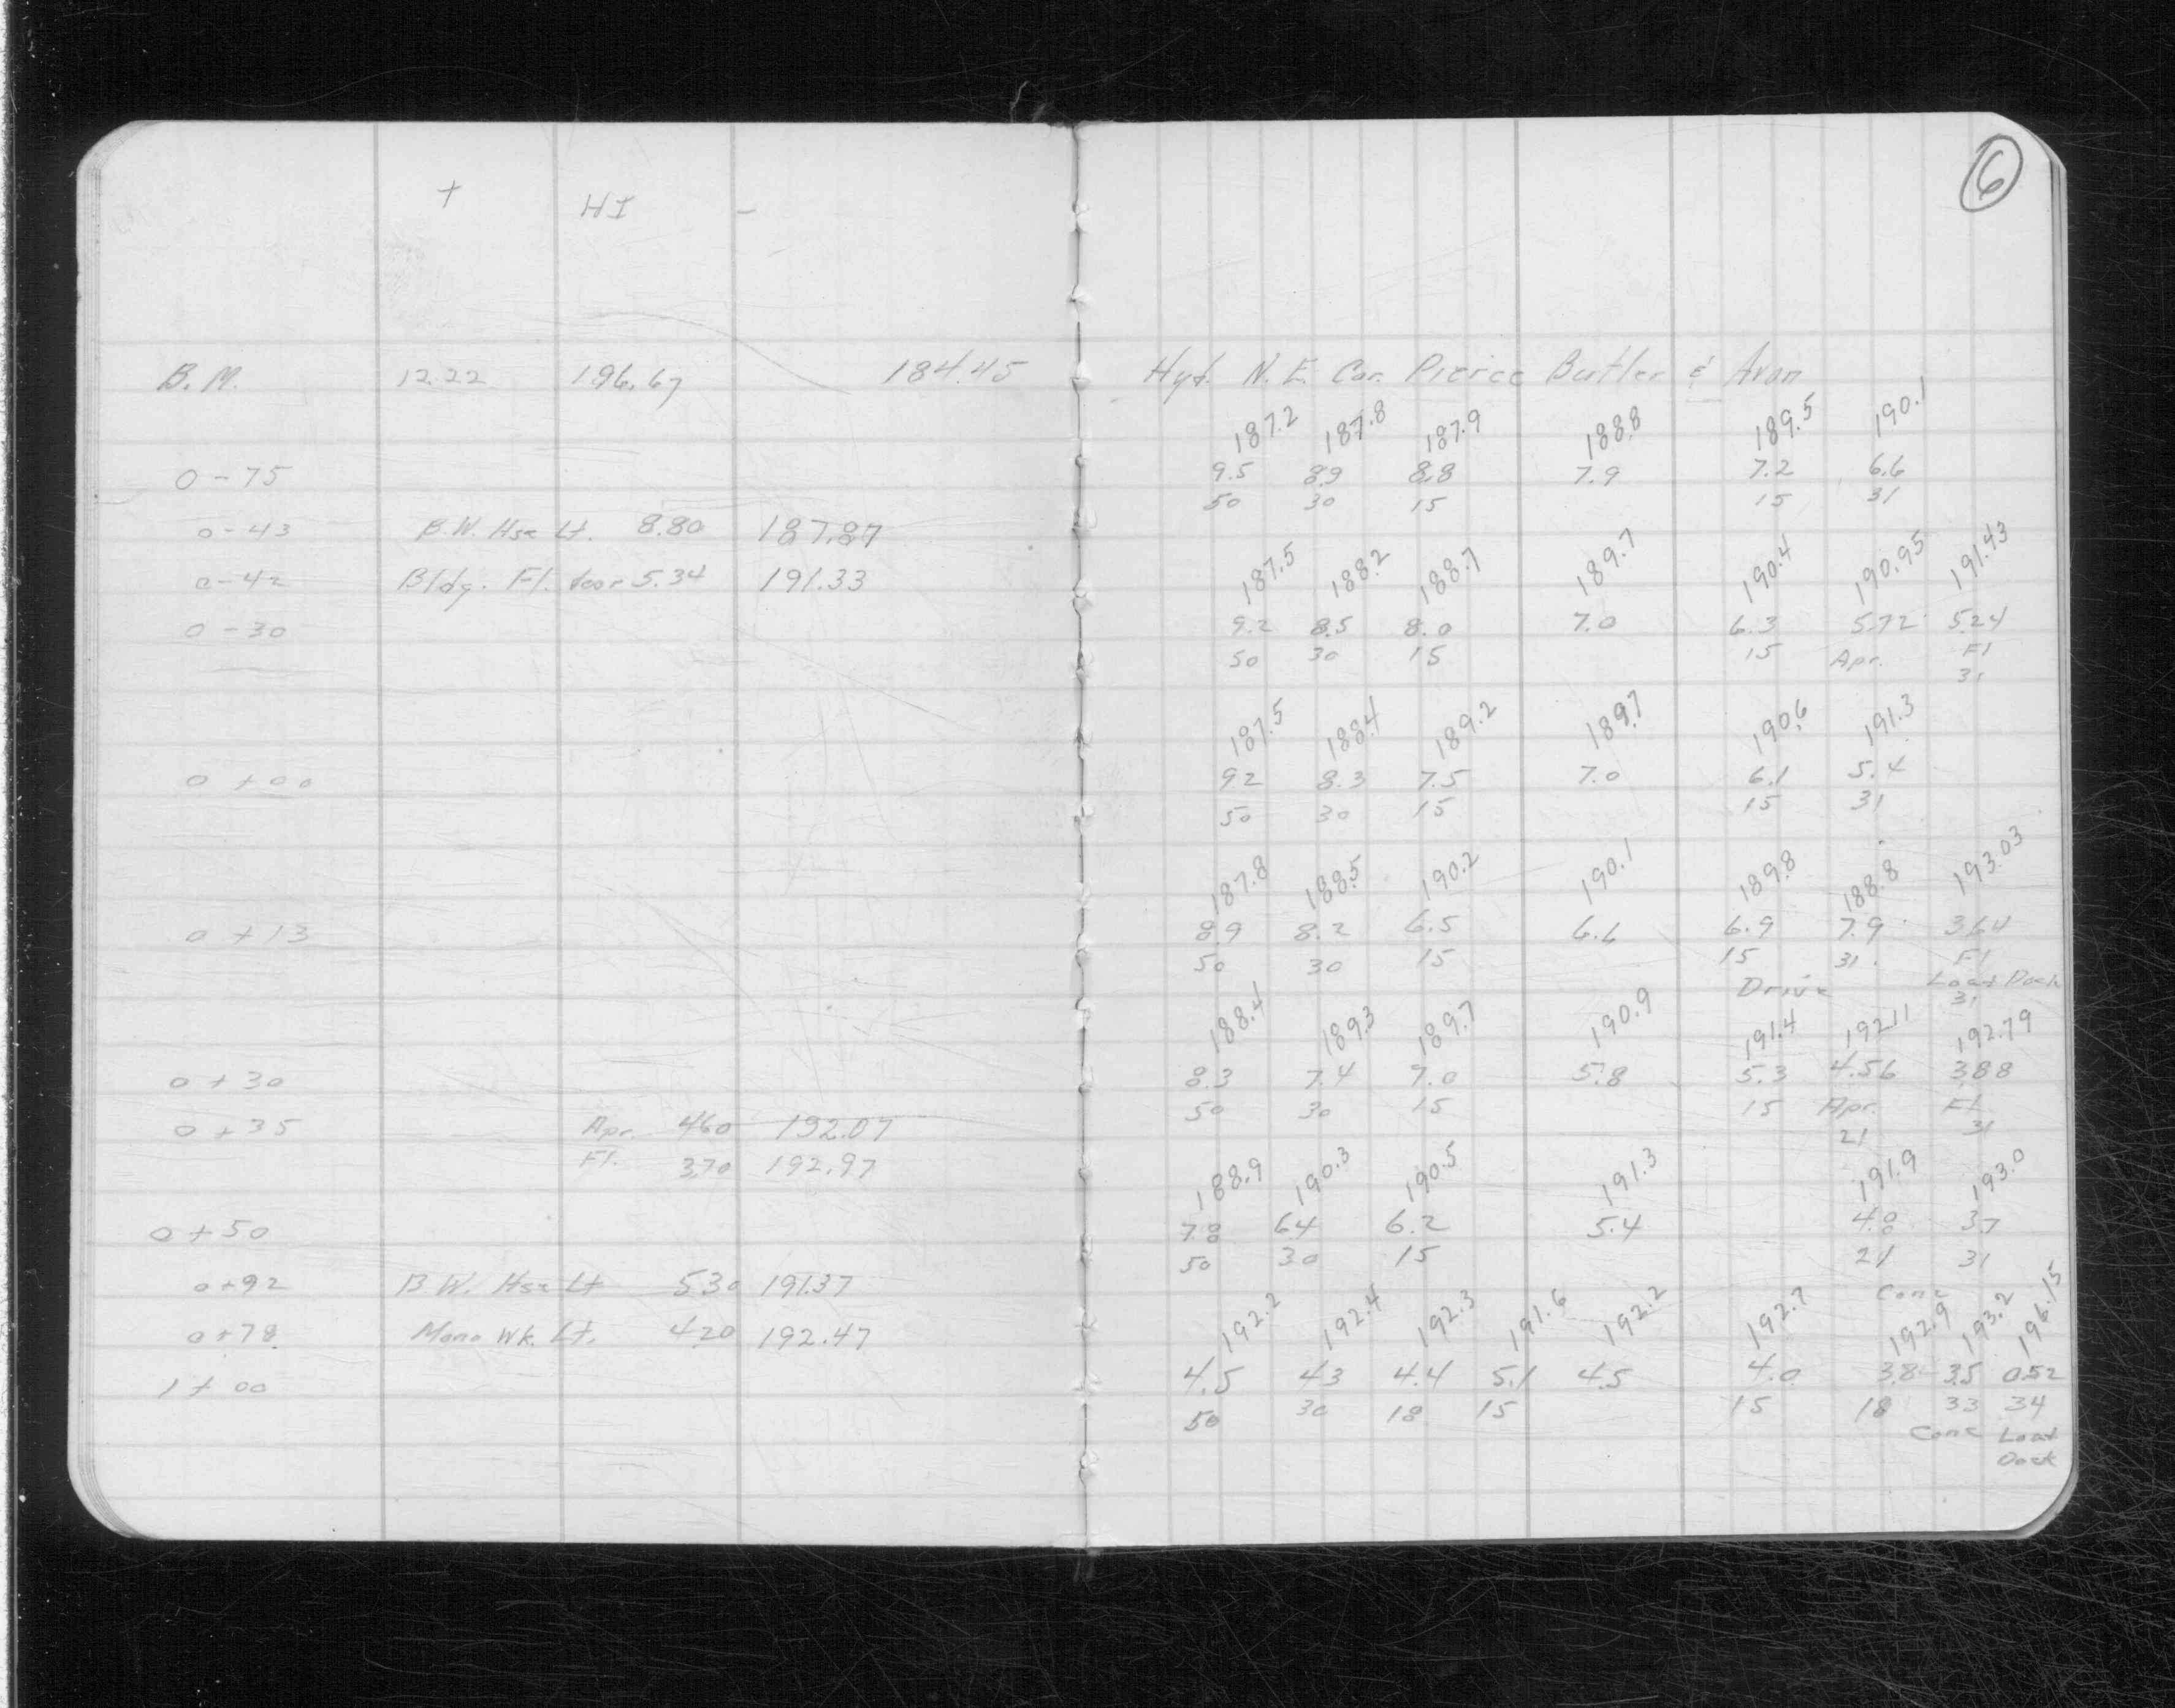 6
+ HI -
B.M. 12.22 196.67 184.45 Hyd. N.E. Cor. Pierce Butler & Avon
187.2 187.8 187.9 188.8 189.5 190.1
0-75 9.5 8.9 8.8 7.9 7.2 6.6
50 30 15 15 31
0-43 B.W. Hse Lt. 8.80 187.87
187.5 188.2 188.7 189.7 190.4 190.95 191.43
0-42 Bldg. Fl. door 5.34 191.33
0-30 9.2 8.5 8.0 7.0 6.3 5.72 5.24
50 30 15 15 Apr. Fl
31
187.5 188.4 189.2 189.7 190.6 191.3
0+00 9.2 8.3 7.5 7.0 6.1 5.4
50 30 15 15 31
187.8 188.5 190.2 190.1 189.8 188.8 193.03
0+13 8.9 8.2 6.5 6.6 6.9 7.9 3.64
50 30 15 15 31 Fl
Drive Load Dock
31
188.4 189.3 189.7 190.9 191.4 192.11 192.79
0+30 8.3 7.4 7.0 5.8 5.3 4.56 3.88
50 30 15 15 Apr. Fl.
0+35 Apr. 4.60 192.07 21 31
Fl. 3.70 192.97
188.9 190.3 190.5 191.3 191.9 193.0
0+50 7.8 6.4 6.2 5.4 4.8 3.7
50 30 15 21 31
Conc
0+92 B.W. Hse Lt 5.30 191.37
192.2 192.4 192.3 191.6 192.2 192.7 192.9 193.2 196.15
0+78 Mono Wk. Lt. 4.20 192.47
1+00 4.5 4.3 4.4 5.1 4.5 4.0 3.8 3.5 0.52
50 30 18 15 15 18 33 34
Conc Load
Dock